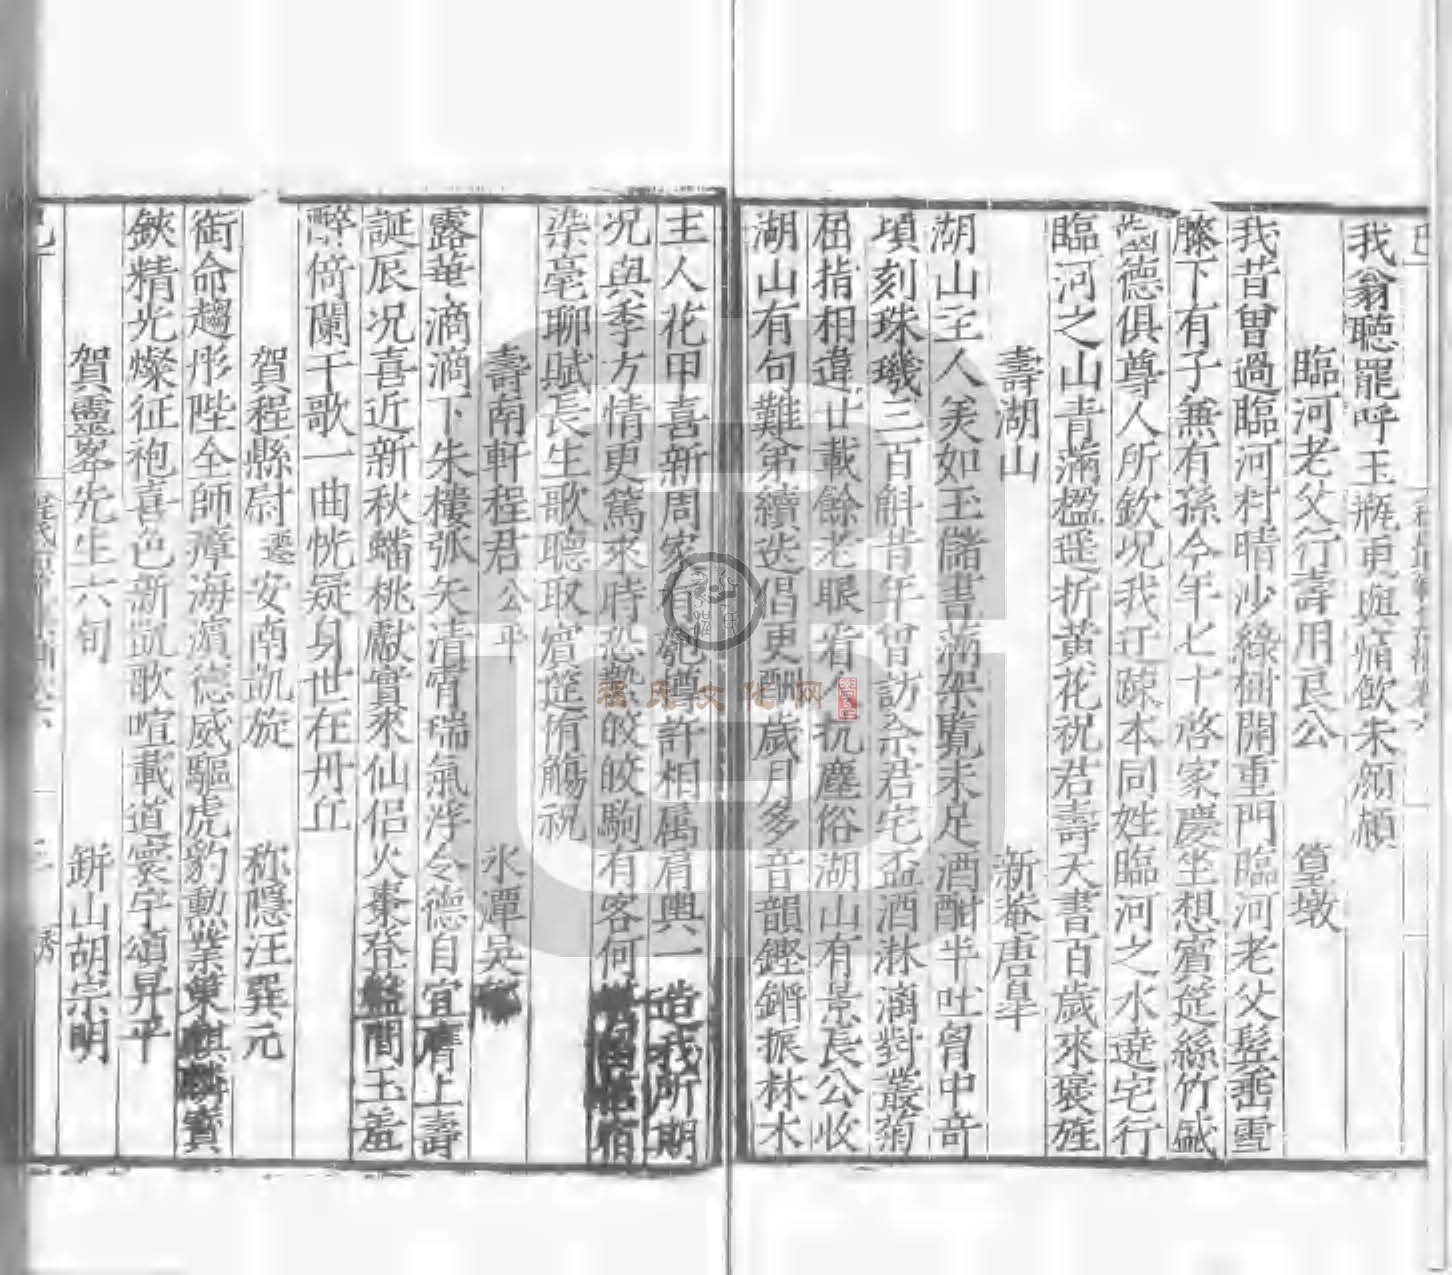 我翁聽罷呼玉瓶更與痛飲未須顛
臨河老父行壽用良公 篁墩
我昔曾過臨河村晴沙綠柳開重門臨河老父髭垂雪
膝下有子無有孫今年七十啓家慶坐想賓筵絲竹盛
德俱尊人所欽況我迂疎本同姓臨河之水遶宅行
臨河之山青滿楹遥折黃花祝君壽天書百歲來褒旌
壽湖山 新菴唐皐
湖山主人美如玉儲書滿架覽未足酒酣半吐胷中奇
頃刻珠璣三百斛昔年曾訪余君宅盃酒淋漓對叢菊
屈指相違廿載餘老眼看 抗塵俗湖山有景長公收
湖山有句難弟續迭倡更酬歲月多音韻鏗鏘振林木
主人花甲喜新周家有 樽許相屬肩輿一造我所期
況與季方情更篤來時恐歎皎皎駒有客何 宿
染毫聊賦長生歌聽取賓筵侑觴祝
壽南軒程君公平 水潭吳
露華滴滴下朱樓弧矢濆宵瑞氣浮令德自宜膺上壽
誕辰況喜近新秋蟠桃獻實來仙侶火棗登盤間玉羞
醉倚闌干歌一曲恍疑身世在丹丘
賀程縣尉遷安南凱旋 稱隱汪巽元
銜命趨彤陛全師瘴海濱德威驅虎豹勳業策麒麟寶
鋏精光燦征袍喜色新凱歌喧載道寰宇頌昇平
賀靈峯先生六旬 缾山胡宗明
程氏文化网